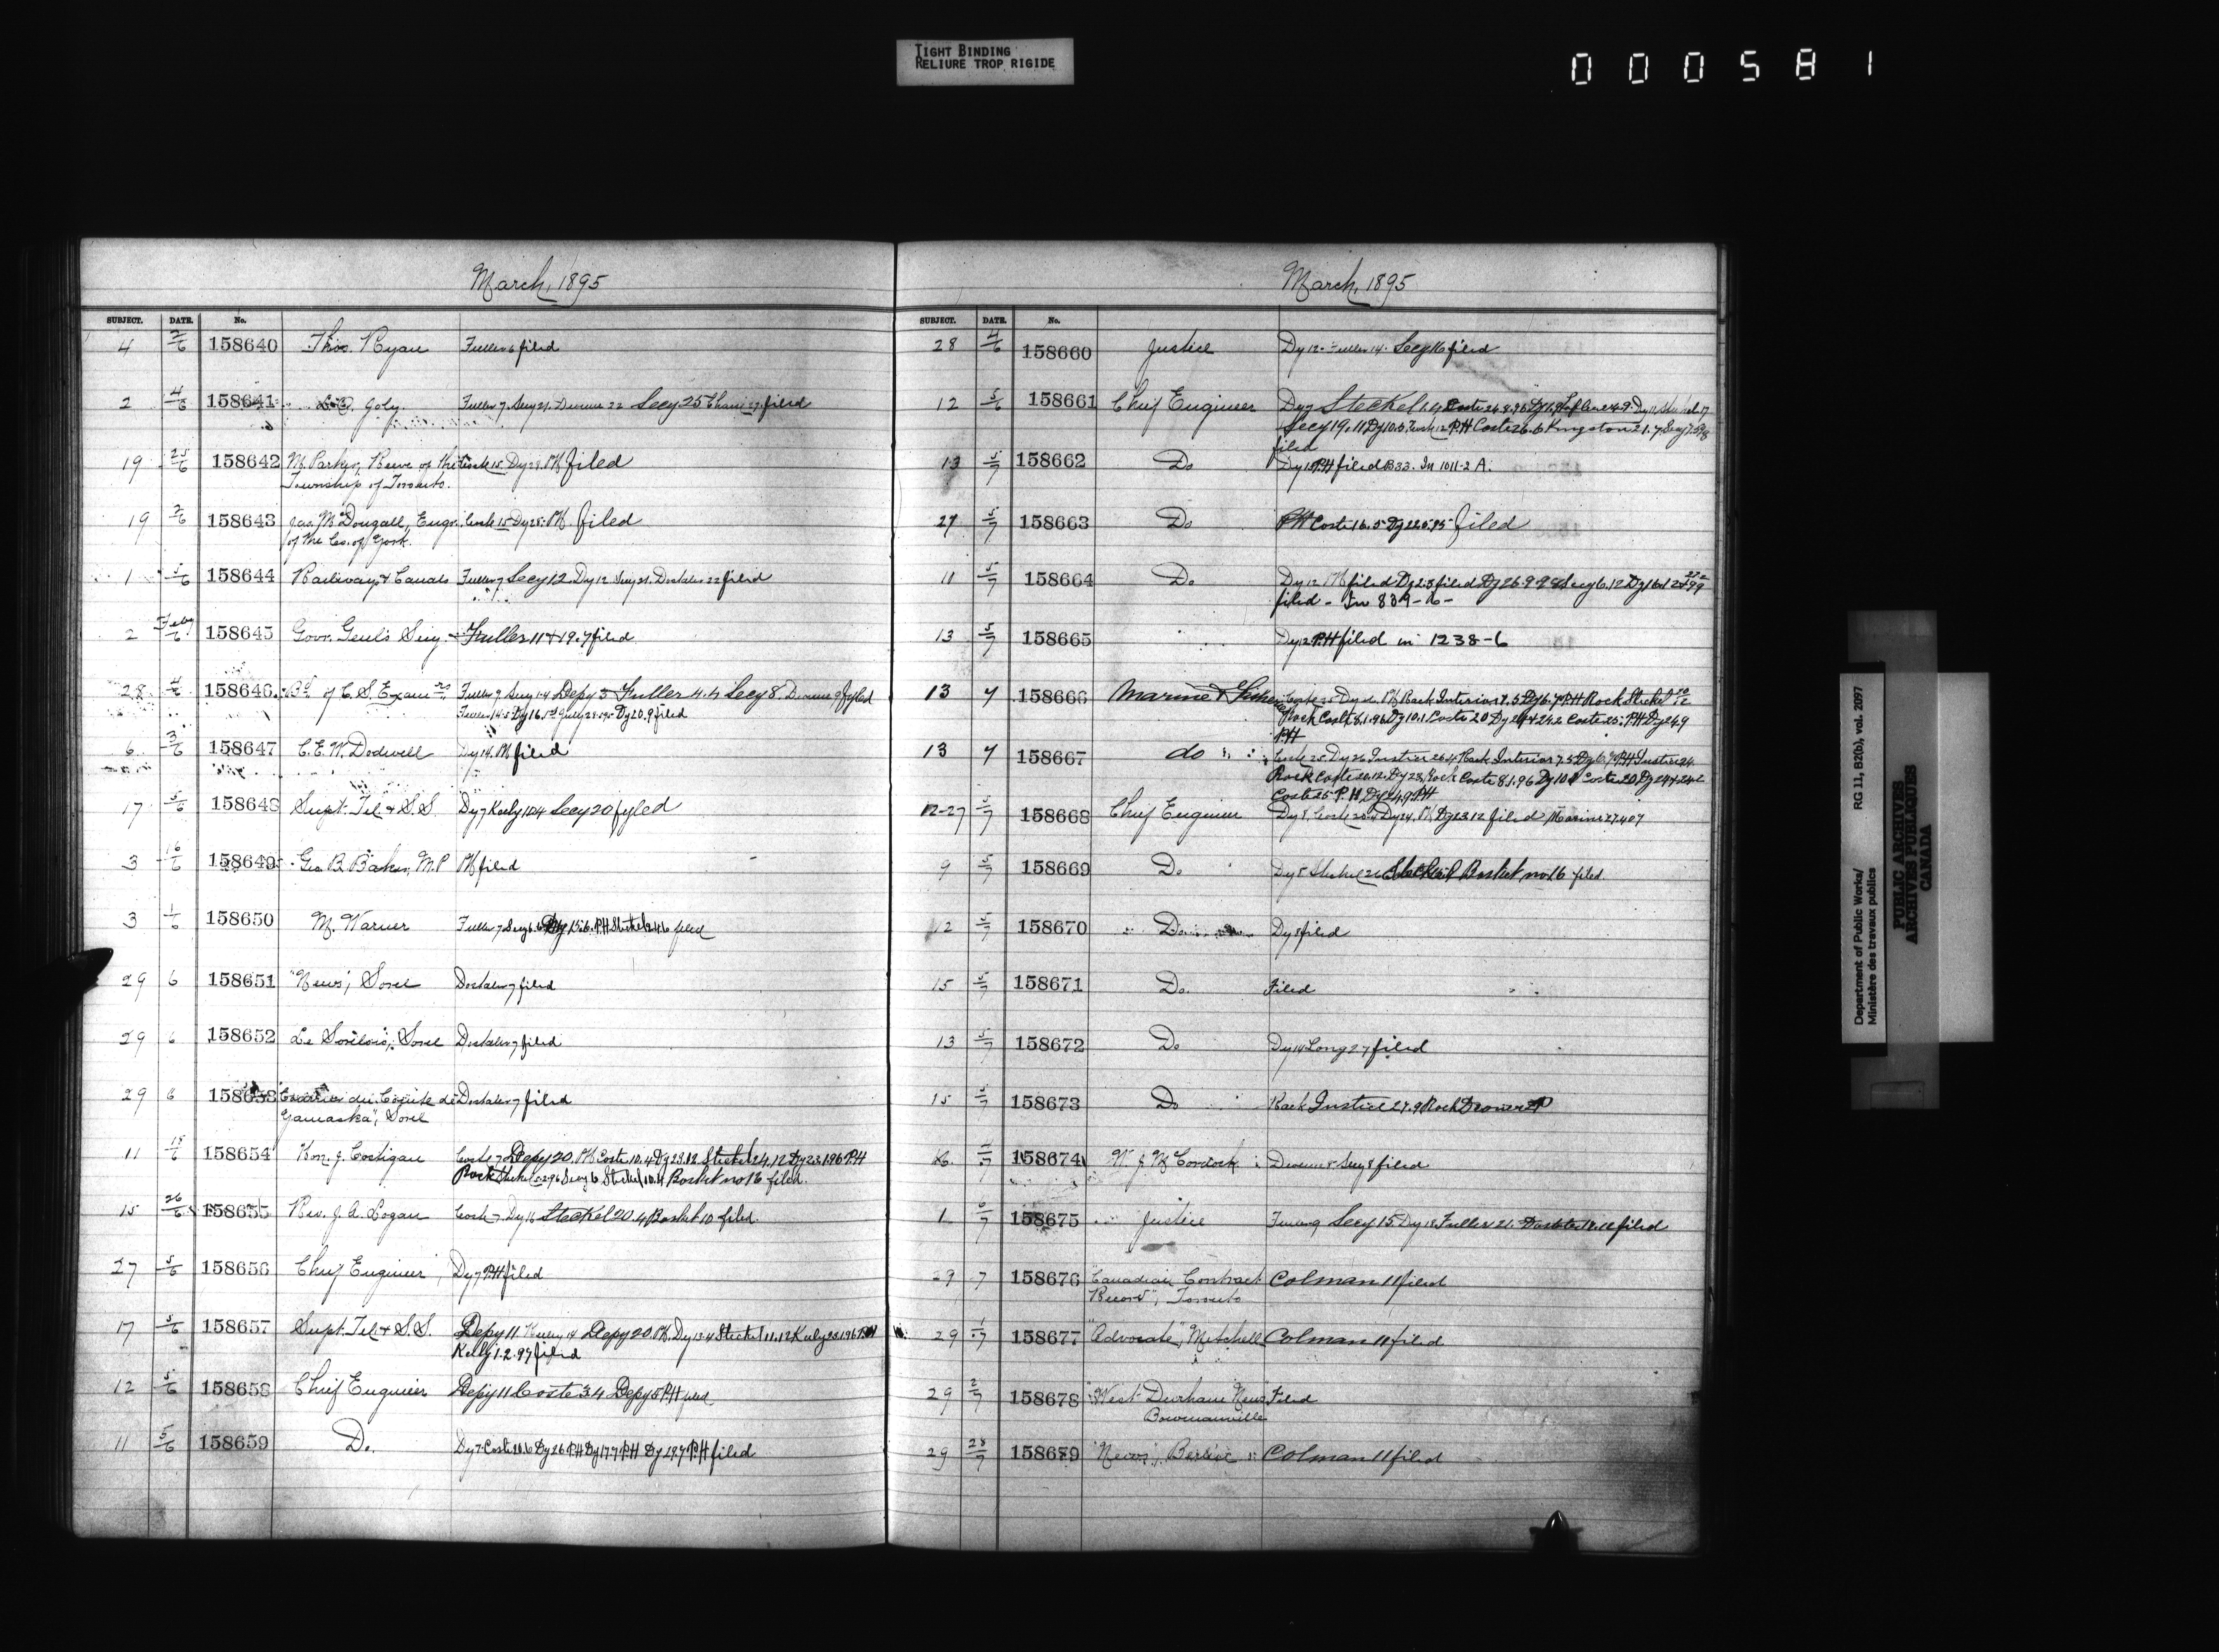 TIGHT BINDING
RELIURE TROP RIGIDE
000581
March, 1895
SUBJECT. DATE. No.
4 2/6 158640 Thos. Ryan Fuller 6 filed
2 4/6 158641 Joly Fuller 7. Secy 21. Secy 25 filed
19 25/6 158642 M. Parker, Reeve of the Coste 15. Dy 28. PH filed
Township of Toronto.
19 2/6 158643 Jas. McDougall, Engr. Coste 15 Dy 25. PH. filed
of the Co. of York.
1 5/6 158644 Railways & Canals Fuller 7 Secy 12. Dy 12. Secy 21. Dostaler 22 filed
2 Feby/6 158645 Govr. Genl's Secy Fuller 11 & 19.7 filed
28 4/6 158646 Bd. of C. S. Examrs Fuller 9 Secy 14 Depy 3 Fuller 4.4 Secy 8. 9 fyled
Dy 20.9 filed
6 3/6 158647 C. E. W. Dodwell Dy 14. PH filed
17 5/6 158648 Supt. Tel. & S.S. Dy 7 Keely 10.4 Secy 20 fyled
3 16/6 158649 Geo. B. Baker, M.P PH filed
3 1/6 158650 M. Warner Fuller 7 Secy 6.6 Dy 15.6. PH Steckel 24.6 filed
29 6 158651 "News", Sorel Dostaler 7 filed
29 6 158652 Le Sorelois, Sorel Dostaler 7 filed
29 6 158653 du Comité de Dostaler 7 filed
Yamaska", Sorel
11 15/6 158654 Hon. J. Costigan Coste 7 Depy 20. PH Coste 10.4 Dy 23.12 Steckel 24.12 Dy 23.1.96 PH
Rock Steckel Secy 6 Steckel 10.4 Basket no 16 filed.
15 26/6 158655 Rev. J. A. Logan Coste 7. Dy 16 Steckel 20.4 Basket 10 filed.
27 5/6 158656 Chief Engineer Dy 7 PH filed
17 5/6 158657 Supt. Tel. & S.S. Depy 11 Keeley 14 Depy 20. PH. Dy 13.4 Steckel 11.12 Keely 23.1.96 PH
Kelly 1.2.97 filed
12 5/6 158658 Chief Engineer Depy 11 Coste 3.4 Depy 5 PH filed
11 5/6 158659 Do. Dy 7 Coste 10.6 Dy 26 PH Dy 17.7 PH Dy 29.7 PH filed
March, 1895
SUBJECT. DATE. No.
28 4/6 158660 Justice Dy 12. Fuller 14. Secy 16 filed
12 5/6 158661 Chief Engineer Dy 7 Steckel 1.4 Coste
Secy 19.11 Dy 10.3 PH Coste 26.6 Kingston 21.7
filed
13 5/7 158662 Do Dy 12 PH filed B33. In 1011-2 A.
27 5/7 158663 Do PH Coste 16.5 Dy 22.5.95 filed
11 5/7 158664 Do Dy 12 PH filed Dy 2.8 filed Dy 26.9.98 Secy 6.12
filed - In 839-6-
13 5/7 158665 Dy 12 PH filed in 1238-6
13 7 158666 Marine & Fisheries Coste 25 Dy 26 PH Rock Interior 7.5 Dy 6.7 PH Rock Steckel
Rock Coste 8.1.96 Dy 10.1 Coste 20 Dy 24 & 24.2 Coste 25. PH Dy 24.9
PH
13 7 158667 do Coste 25 Dy 26 Justice 26.4 Rock Interior 7.5 Dy 6.7 PH Justice 24.
Rock Coste 20.12. Dy 23. Rock Coste 8.1.96 Dy 10.1 Coste 20 Dy 24 & 24.2
Coste 25 P.H Dy 24.9 PH
12-27 5/7 158668 Chief Engineer Dy 8 Coste 20.4 Dy 24. PH Dy 23.12 filed Marine 27.4.07
9 5/7 158669 Do Dy 8 Steckel 26 Steckel Basket no 16 filed.
12 5/7 158670 Do Dy 8 filed
15 5/7 158671 Do. Filed
13 5/7 158672 Do Dy 14 Long 27 filed
15 5/7 158673 Do Rock Justice 27.9 Rock Drawer
5/7 158674 Secy 8 filed
1 6/7 158675 Justice Secy 15 Dy 18 Fuller 21. filed
29 7 158676 "Canadian Contract Colman 11 filed
Record", Toronto
29 1/7 158677 "Advocate", Mitchell Colman 11 filed
29 2/7 158678 "West Durham News" Filed
Bowmanville
29 28/7 158679 "News", Berlin Colman 11 filed
Department of Public Works/ RG 11, B2(b), vol. 2097
Ministère des travaux publics
PUBLIC ARCHIVES
ARCHIVES PUBLIQUES
CANADA